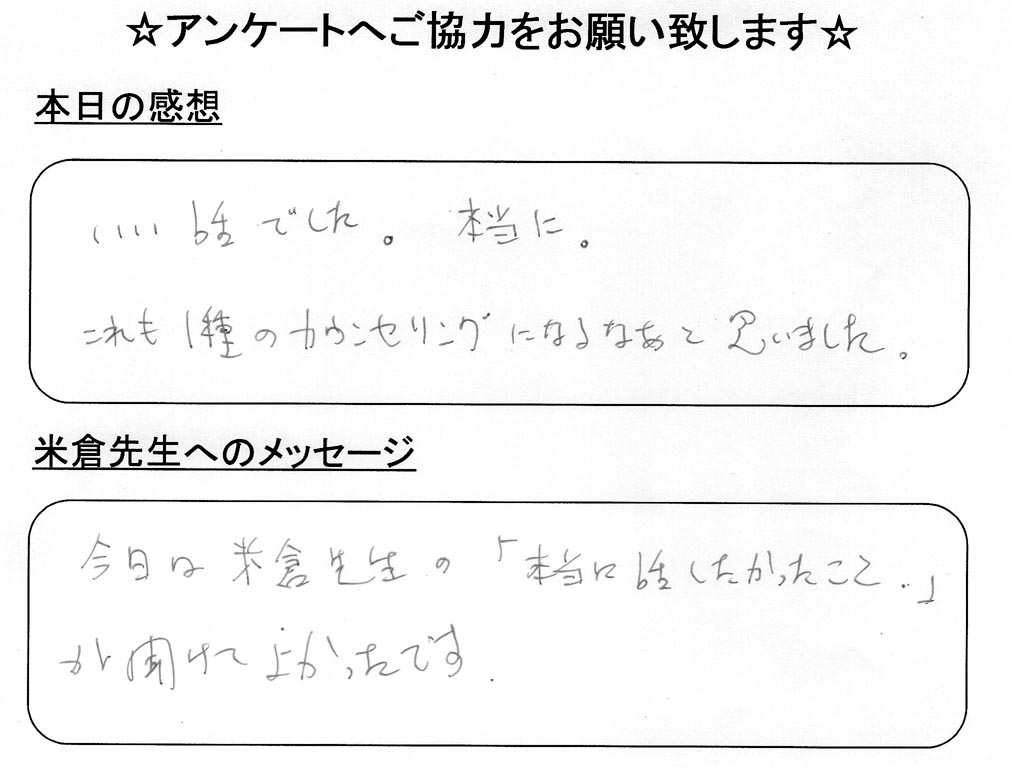 ☆アンケートへご協力をお願い致します☆
本日の感想
いい話でした。 本当に。
これも1種のカウンセリングになるなあと思いました。
米倉先生へのメッセージ
今日は米倉先生の「本当に話したかったこと.」
が聞けてよかったです.